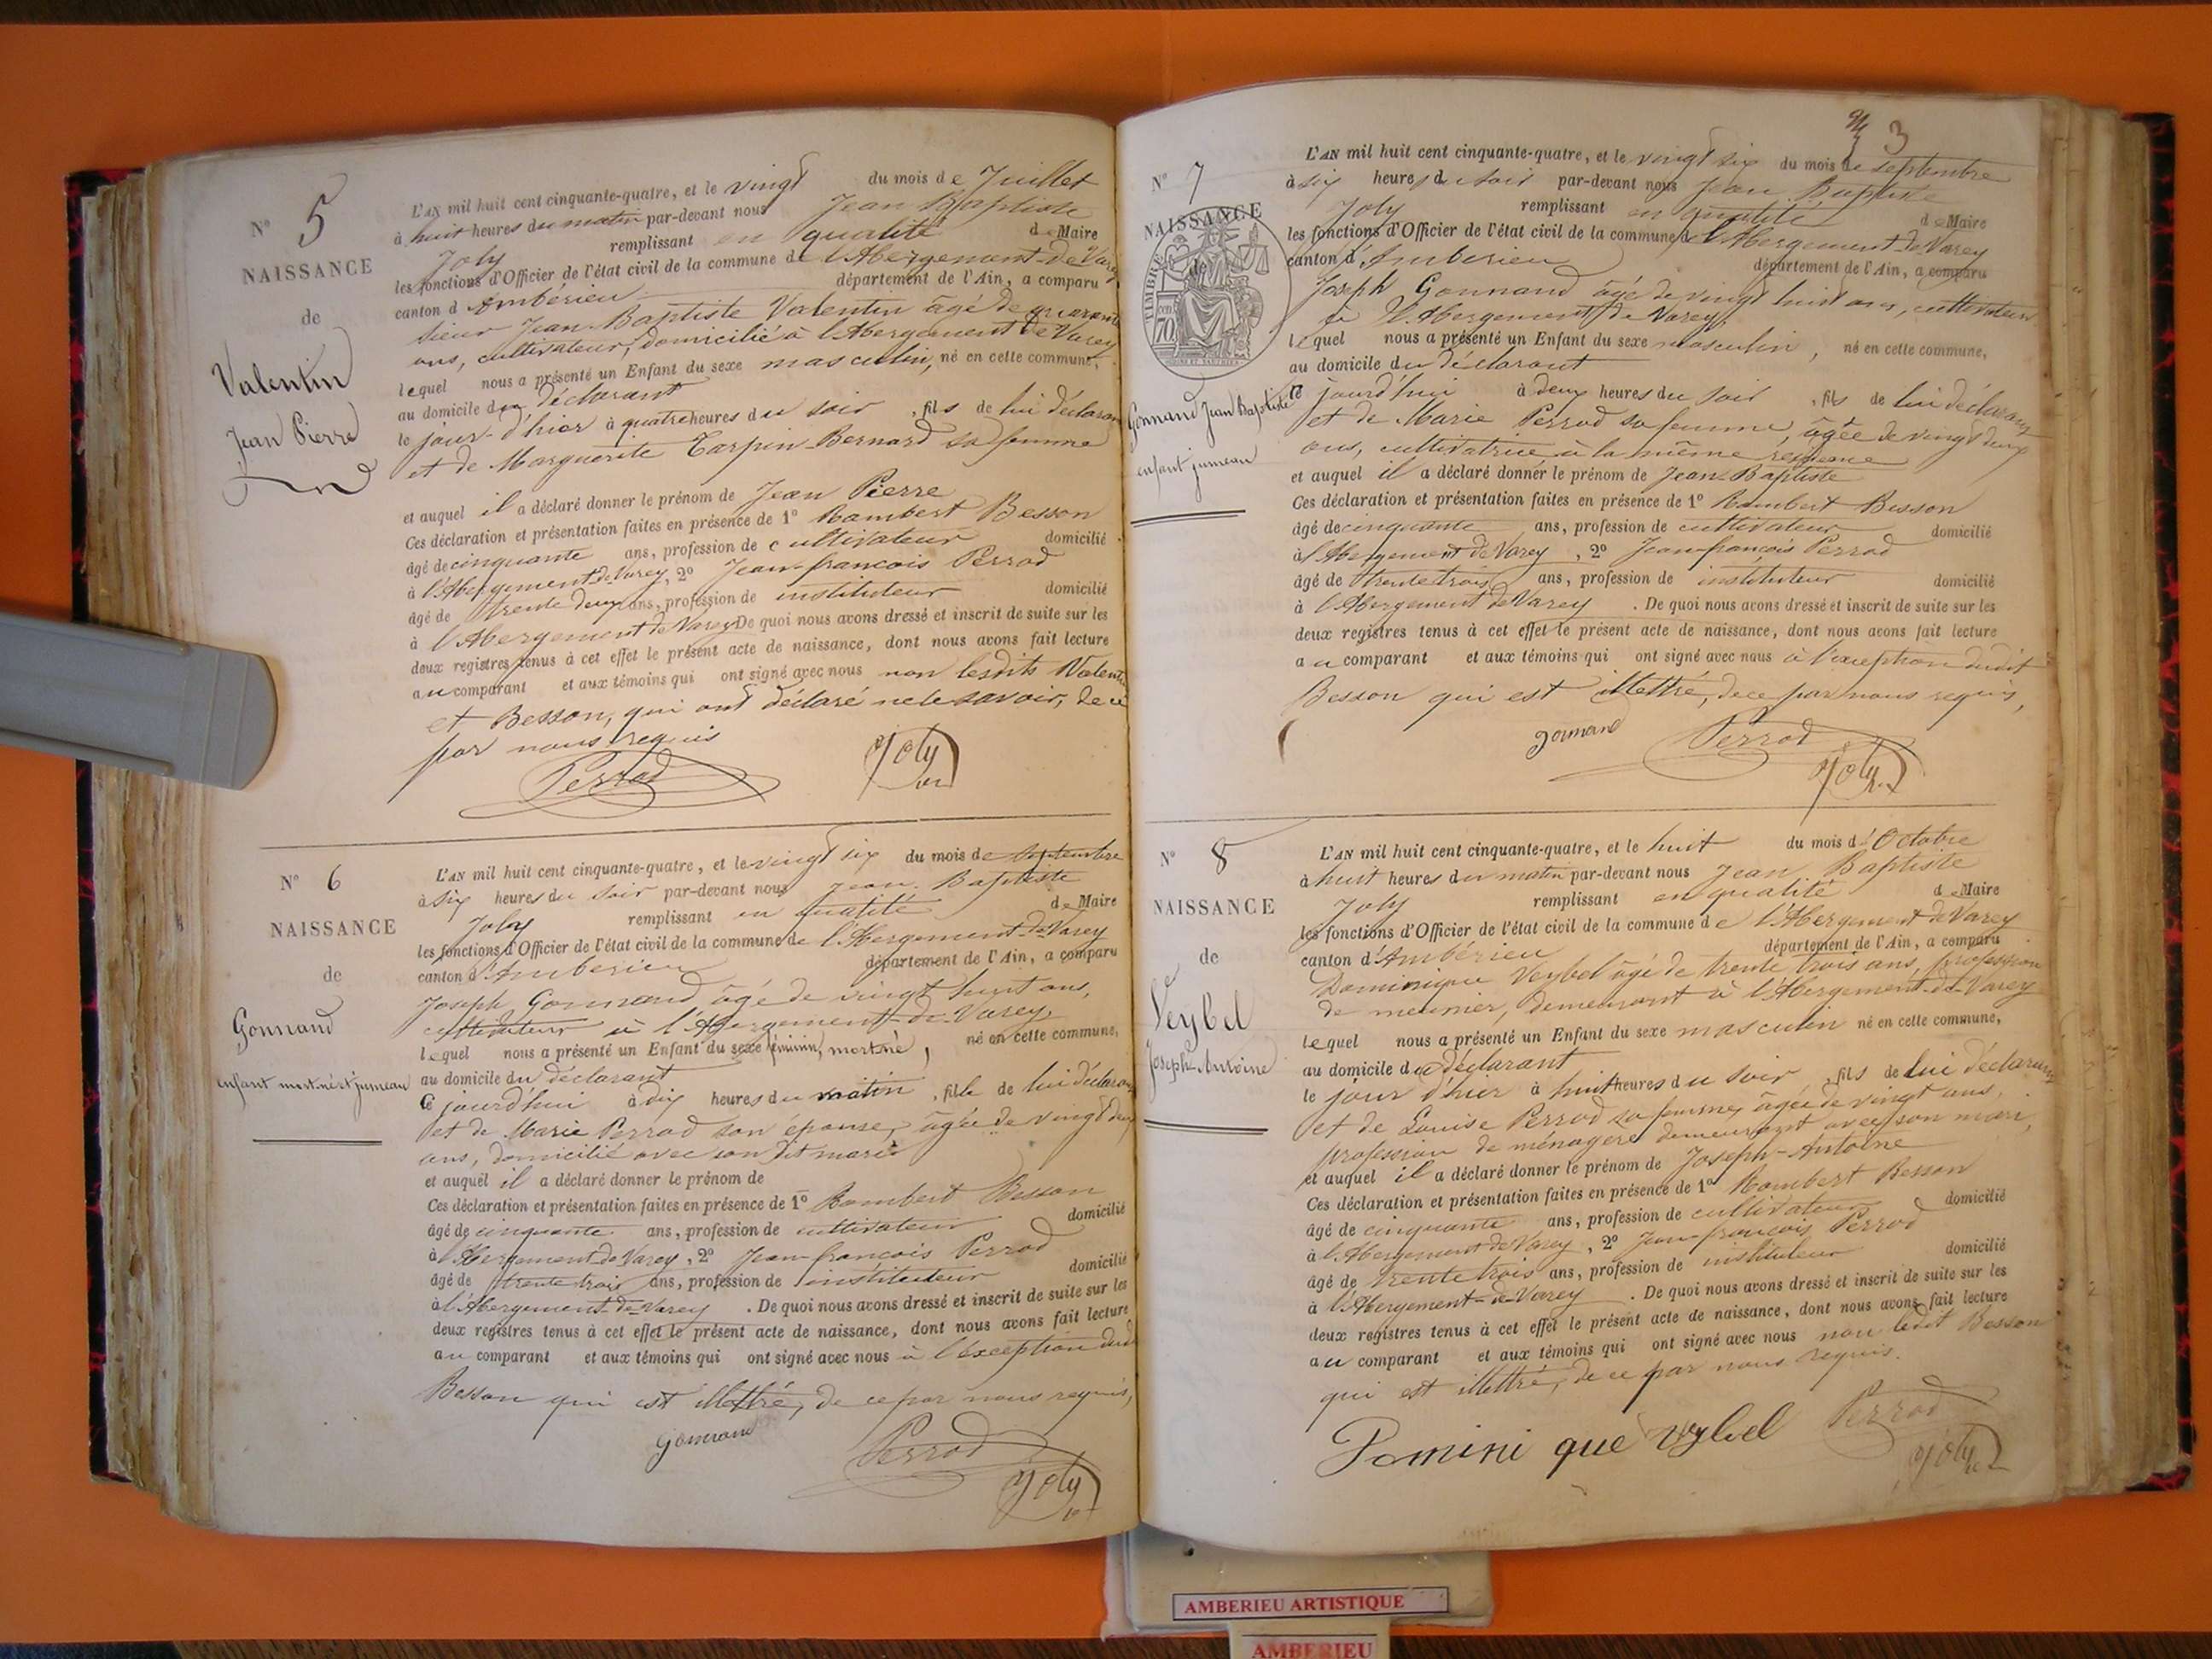 N° 5
NAISSANCE
de
Valentin
Jean Pierre
L'AN mil huit cent cinquante-quatre, et le vingt du mois de Juillet
à huit heures du matin par-devant nous Jean Baptiste
Joly remplissant en qualité de Maire
les fonctions d'Officier de l'état civil de la commune de l'Abergement-de-Varey
canton d'Ambérieu département de l'Ain, a comparu
sieur Jean-Baptiste Valentin âgé de quarante
ans, cultivateur, domicilié à l'Abergement de Varey
lequel nous a présenté un Enfant du sexe masculin, né en cette commune,
au domicile du déclarant
le jour-d'hier à quatre heures du soir, fils de lui déclarant
et de Marguerite Tarpin-Bernard sa femme
et auquel il a déclaré donner le prénom de Jean Pierre
Ces déclaration et présentation faites en présence de 1° Rambert Besson
âgé de cinquante ans, profession de cultivateur domicilié
à l'Abergement de Varey, 2° Jean-francois Perrod
âgé de trente deux ans, profession de instituteur domicilié
à l'Abergement de Varey De quoi nous avons dressé et inscrit de suite sur les
deux registres tenus à cet effet le présent acte de naissance, dont nous avons fait lecture
au comparant et aux témoins qui ont signé avec nous non lesdits Valentin
et Besson, qui ont déclaré ne le savoir, de ce
par nous requis
Perrod Joly
N° 6
NAISSANCE
de
Gonnand
enfant mort né et jumeau
L'AN mil huit cent cinquante-quatre, et le vingt six du mois de Septembre
à six heures du soir par-devant nous Jean-Baptiste
Joly remplissant en qualité de Maire
les fonctions d'Officier de l'état civil de la commune de l'Abergement-de-Varey
canton d'Amberieu département de l'Ain, a comparu
Joseph Gonnand âgé de vingt huit ans,
cultivateur à l'Abergement-de-Varey,
lequel nous a présenté un Enfant du sexe féminin, mort né, né en cette commune,
au domicile du déclarant
ce jourd'hui à dix heures du matin, fille de lui déclarant
et de Marie Perrod son épouse, âgée de vingt deux
ans, domicilié avec son dit mari
et auquel il a déclaré donner le prénom de
Ces déclaration et présentation faites en présence de 1° Rambert Besson
âgé de cinquante ans, profession de cultivateur domicilié
à l'Abergement de Varey, 2° Jean-francois Perrod
âgé de trente trois ans, profession de instituteur domicilié
à l'Abergement-de-Varey. De quoi nous avons dressé et inscrit de suite sur les
deux registres tenus à cet effet le présent acte de naissance, dont nous avons fait lecture
au comparant et aux témoins qui ont signé avec nous à l'exception dudit
Besson qui est illettré, de ce par nous requis,
Gonnand Perrod
Joly
3
N° 7
NAISSANCE
de
TIMBRE
70
Gonnand Jean Baptiste
enfant jumeau
L'AN mil huit cent cinquante-quatre, et le vingt six du mois de septembre
à six heures du soir par-devant nous Jean Baptiste
Joly remplissant en qualité de Maire
les fonctions d'Officier de l'état civil de la commune de l'Abergement-de-Varey
canton d'Amberieu département de l'Ain, a comparu
Joseph Gonnand âgé de vingt huit ans, cultivateur
à l'Abergement de Varey,
lequel nous a présenté un Enfant du sexe masculin, né en cette commune,
au domicile du déclarant
ce jourd'hui à deux heures du soir, fils de lui déclarant
et de Marie Perrod sa femme, âgée de vingt deux
ans, cultivatrice à la même résidence
et auquel il a déclaré donner le prénom de Jean-Baptiste
Ces déclaration et présentation faites en présence de 1° Rambert Besson
âgé de cinquante ans, profession de cultivateur domicilié
à l'Abergement de Varey, 2° Jean françois Perrod
âgé de trente trois ans, profession de instituteur domicilié
à l'Abergement de Varey. De quoi nous avons dressé et inscrit de suite sur les
deux registres tenus à cet effet le présent acte de naissance, dont nous avons fait lecture
au comparant et aux témoins qui ont signé avec nous à l'exception dudit
Besson qui est illettré, de ce par nous requis,
gonnand Perrod
Joly
N° 8
NAISSANCE
de
Veybel
Joseph-Antoine
L'AN mil huit cent cinquante-quatre, et le huit du mois d'Octobre
à huit heures du matin par-devant nous Jean Baptiste
Joly remplissant en qualité de Maire
les fonctions d'Officier de l'état civil de la commune de l'Abergement de Varey
canton d'Ambérieu département de l'Ain, a comparu
Dominique Veybel âgé de trente trois ans, profession
de meunier, demeurant à l'Abergement-de-Varey
lequel nous a présenté un Enfant du sexe masculin né en cette commune,
au domicile du déclarant
le jour d'hier à huit heures du soir, fils de lui déclarant
et de Louise Perrod sa femme, âgée de vingt ans,
profession de ménagère demeurant avec son mari,
et auquel il a déclaré donner le prénom de Joseph-Antoine
Ces déclaration et présentation faites en présence de 1° Rambert Besson
âgé de cinquante ans, profession de cultivateur domicilié
à l'Abergement de Varey, 2° Jean françois Perrod
âgé de trente trois ans, profession de instituteur domicilié
à l'Abergement-de-Varey. De quoi nous avons dressé et inscrit de suite sur les
deux registres tenus à cet effet le présent acte de naissance, dont nous avons fait lecture
au comparant et aux témoins qui ont signé avec nous non ledit Besson
qui est illettré, de ce par nous requis.
Domini que Vybel Perrod
Joly
AMBERIEU ARTISTIQUE
AMBERIEU